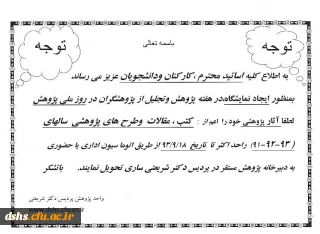 باسمه تعالی
توجه
توجه
به اطلاع کلیه اساتید محترم ، کارکنان ودانشجویان عزیز می رساند
بمنظور ایجاد نمایشگاه،در هفته پژوهش وتجلیل از پژوهشگران در روز ملی پژوهش
لطفا آثار پژوهشی خود را اعم از : کتب، مقالات وطرح های پژوهشی سالهای
( ۹۳-۹۲-۹۱) واحد اکثر تا تاریخ ۹۳/۹/۱۸ از طریق اتوماسیون اداری یا حضوری
به دبیرخانه پژوهش مستقر در پردیس دکتر شریعتی ساری تحویل نمایند. باتشکر
واحد پژوهش پردیس دکتر شریعتی
dshs.cfu.ac.ir